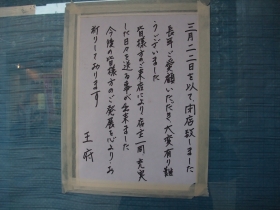 三月二二日を以て、閉店致しました
長年ご愛顧いただき大変有り難
うございました
皆様方のご来店により店主一同充実
した日々を送る事が出来ました
今後の皆様方のご発展を心よりお
祈りしております
王府